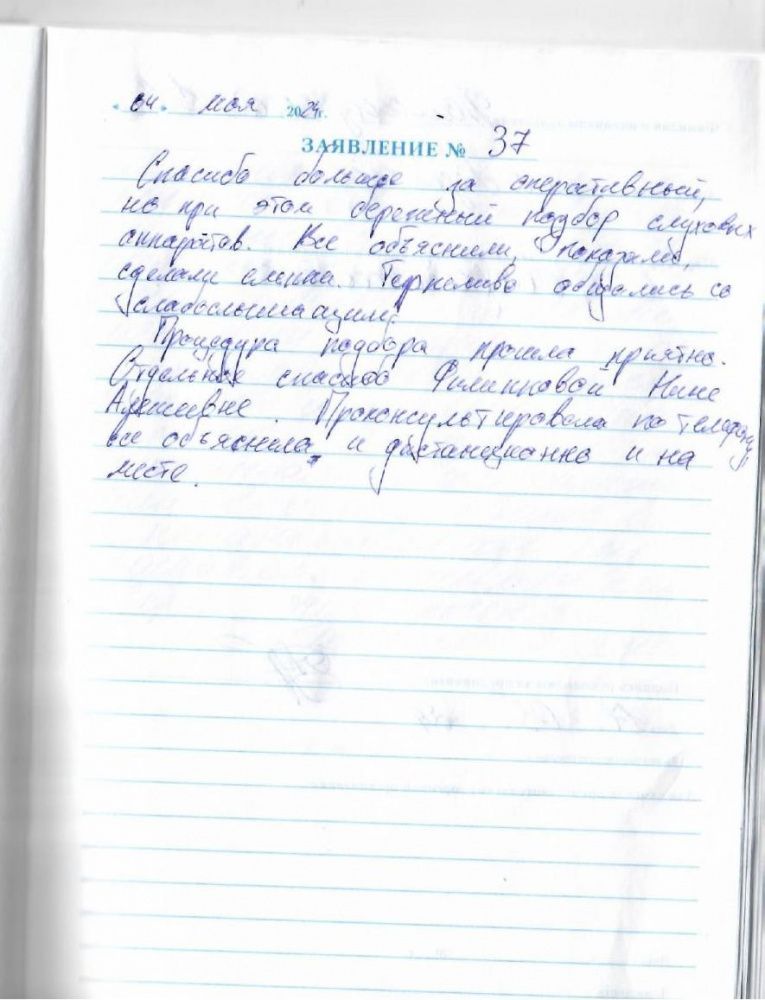 «04» мая 2024г.
ЗАЯВЛЕНИЕ № 37
Спасибо большое за оперативный,
но при этом бережный подбор слуховых
аппаратов. Все объяснили, показали,
сделали слепки. Терпеливо общались со
слабослышащим.
Процедура подбора прошла приятно.
Отдельное спасибо Филипповой Нине
Проконсультировала по телефону,
все объяснила и дистанционно и на
месте.